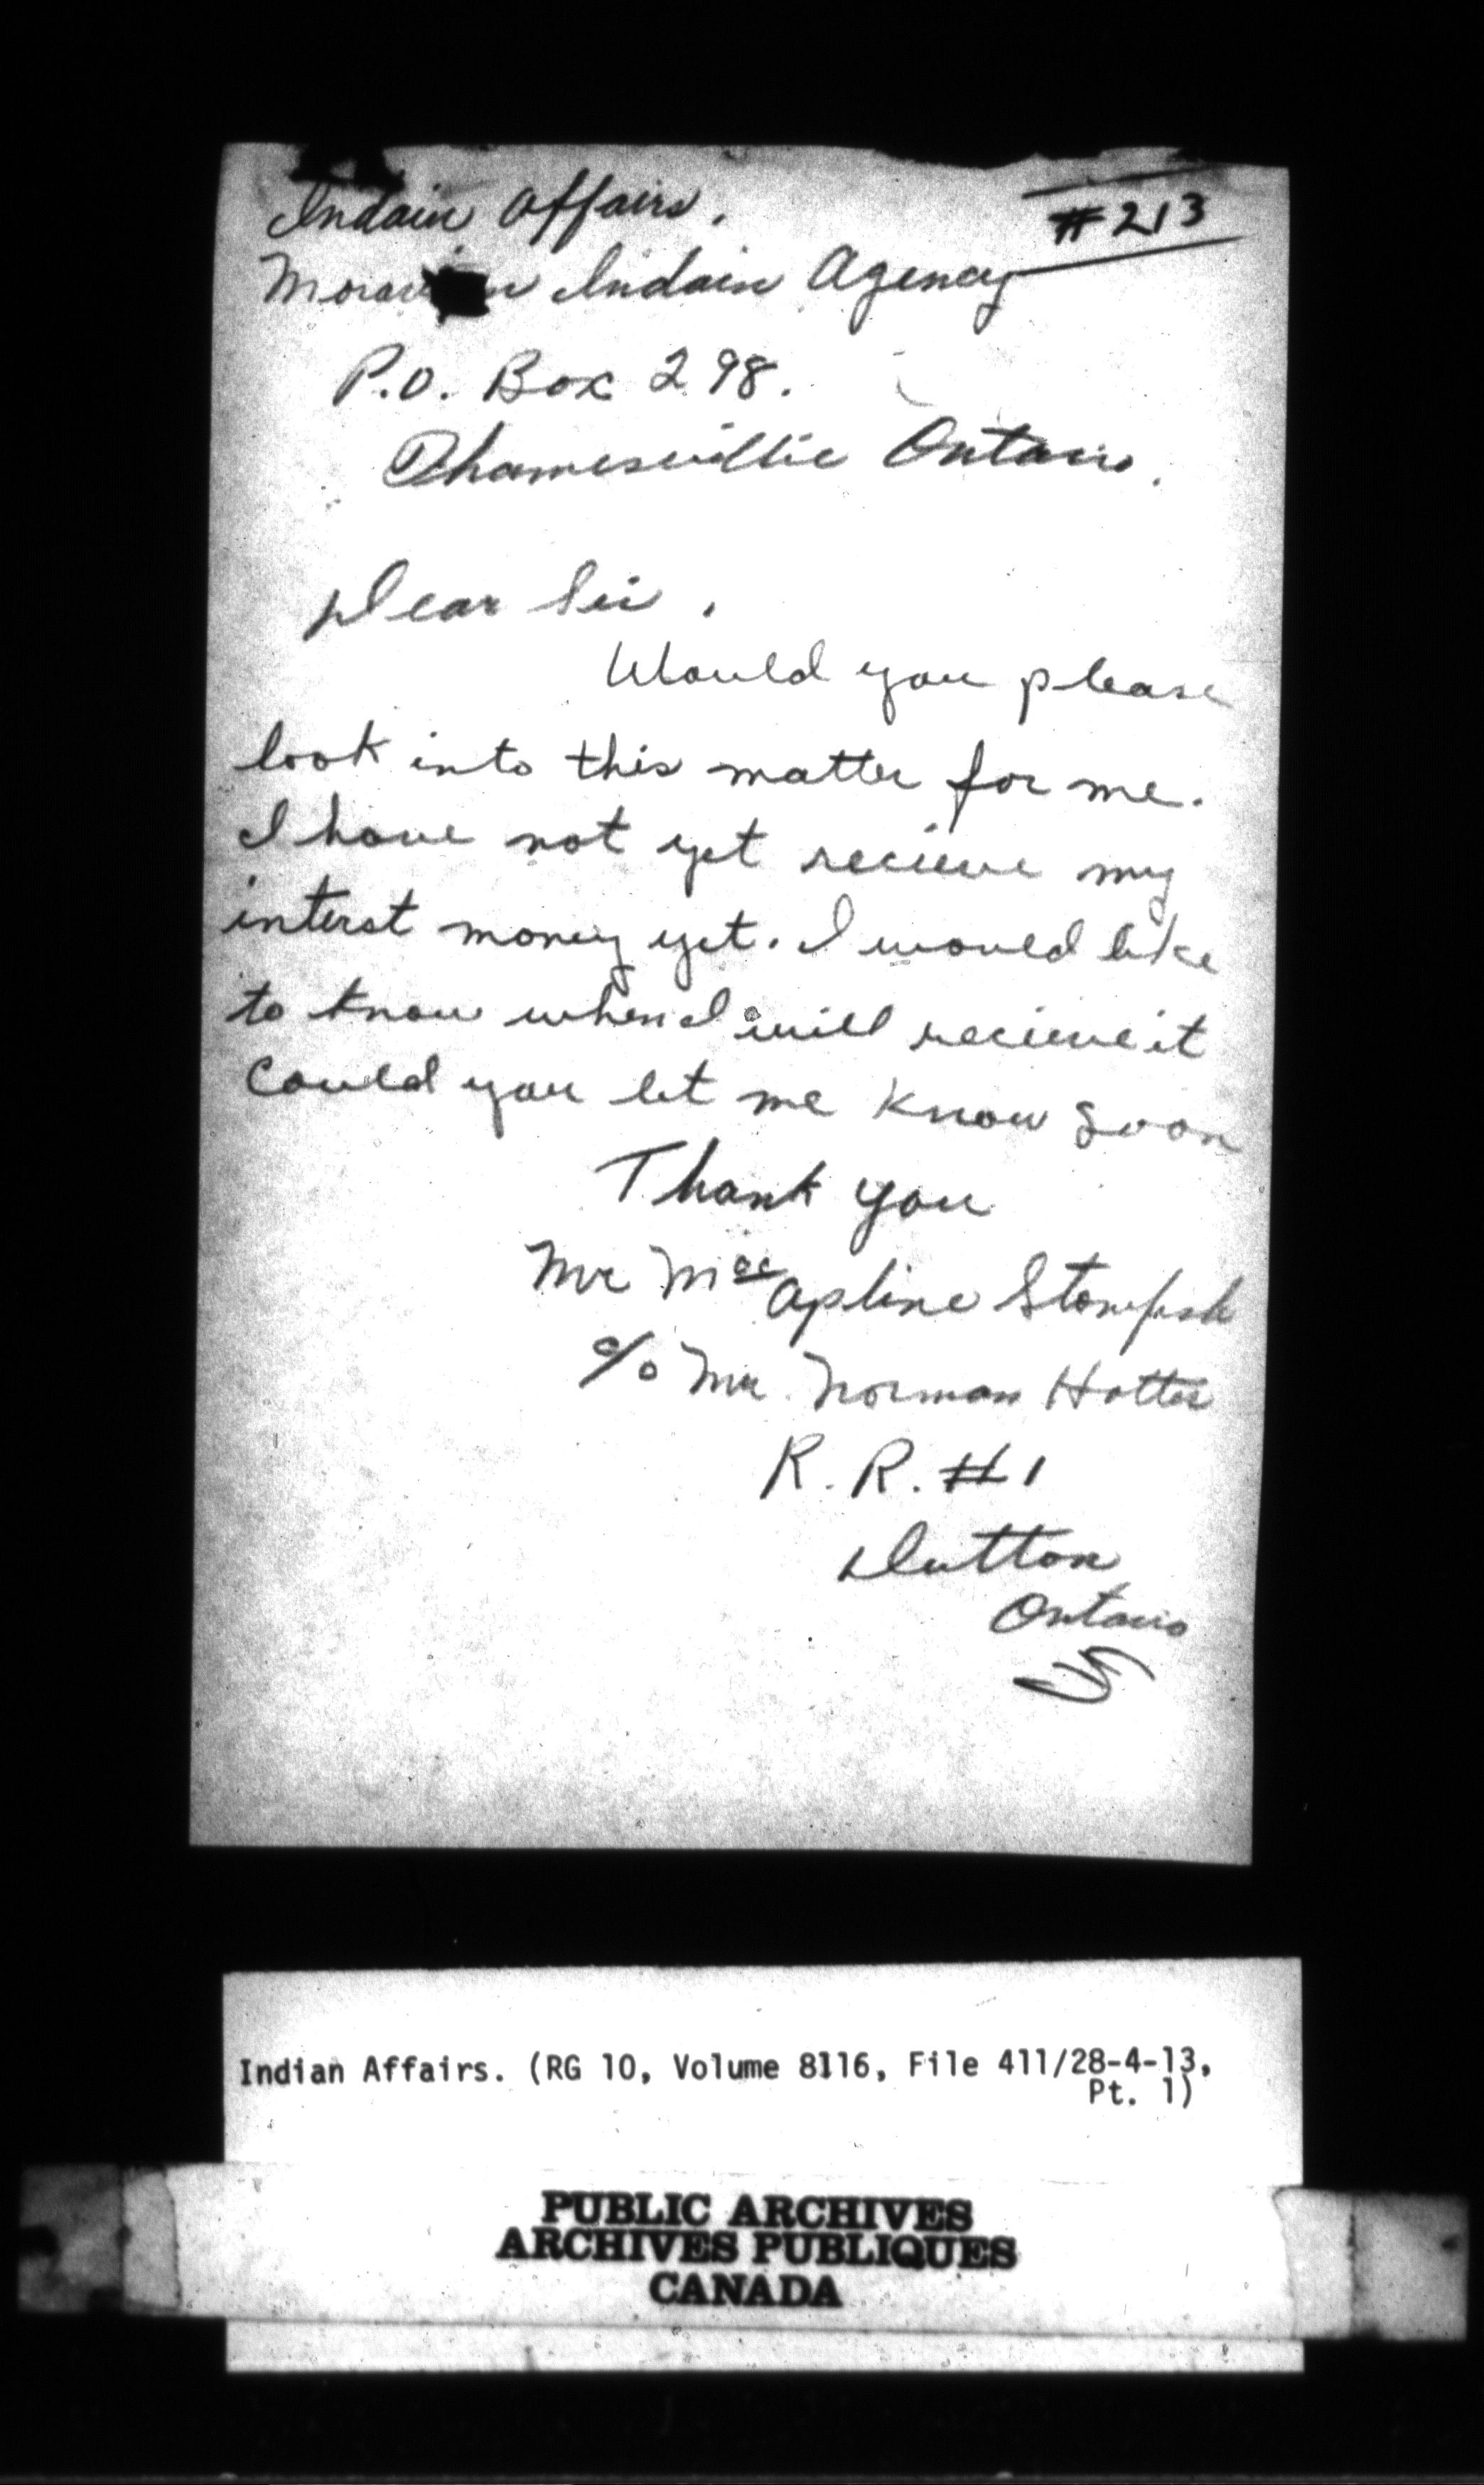 Indain Affairs.
#213
Moravian Indain Agency
P.O. Box 298.
Thamesvillie Ontario.
Dear Sir.
Would you please
look into this matter for me.
I have not yet recieve my
interst money yet. I would like
to know when I will recieve it
Could you let me know soon
Thank you
Mr Mac Apline Stonefish
c/o Mr. Norman
R. R. #1
Dutton
Ontario
Indian Affairs. (RG 10, Volume 8116, File 411/28-4-13,
Pt. 1)
PUBLIC ARCHIVES
ARCHIVES PUBLIQUES
CANADA